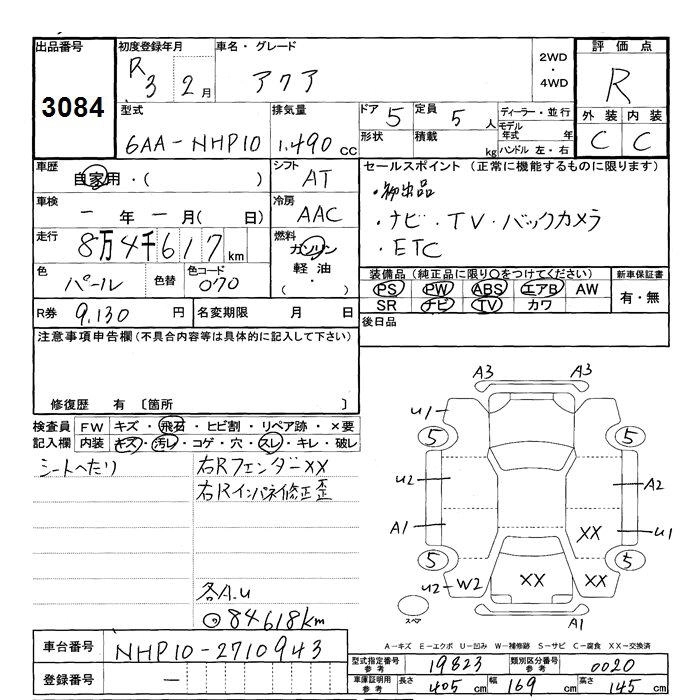 出品番号 3084
初度登録年月 R 3 2 月
車名・グレード アクア
2WD・4WD
評価点 R
外装 内装
C C
型式 6AA-NHP10
排気量 1.490 cc
ドア 5 定員 5 人
形状 積載 kg
ディーラー・並行
モデル年式 年
ハンドル 左・右
車歴 自家用・( )
シフト AT
セールスポイント (正常に機能するものに限ります)
・ナビ・TV・バックカメラ
・ETC
車検 一 年 一 月( 日)
冷房 AAC
走行 8万4千617 km
燃料 ガソリン
軽油
( ・ )
色 パール 色替 色コード 070
装備品 (純正品に限り○をつけてください)
PS PW ABS エアB AW
SR ナビ TV カワ
新車保証書
有・無
R券 9,130 円 名変期限 月 日
後日品
注意事項申告欄(不具合内容等は具体的に記入して下さい)
修復歴 有 〔箇所 〕
検査員記入欄
FW キズ・飛石・ヒビ割・リペア跡・×要
内装 キズ・汚レ・コゲ・穴・スレ・キレ・破レ
シートへたり
右RフェンダーXX
右Rインパネ修正歪
各A.u
84618km
A3 A3
u1
5 5
u2 A2
A1 XX u1
5 5
u2 W2 XX XX
スペア
A1
A-キズ E-エクボ U-凹み W-補修跡 S-サビ C-腐食 XX-交換済
車台番号 NHP10-2710943
登録番号 一
型式指定番号 参考 19823 類別区分番号 参考 0020
車庫証明用 参考 長さ 405 cm 幅 169 cm 高さ 145 cm